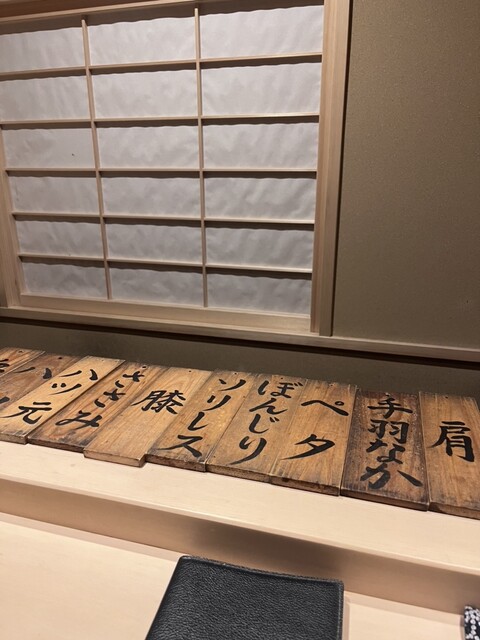 肩
手羽なか
ペタ
ぼんじり
ソリレス
膝
ささみ
ハツ元
ハツ